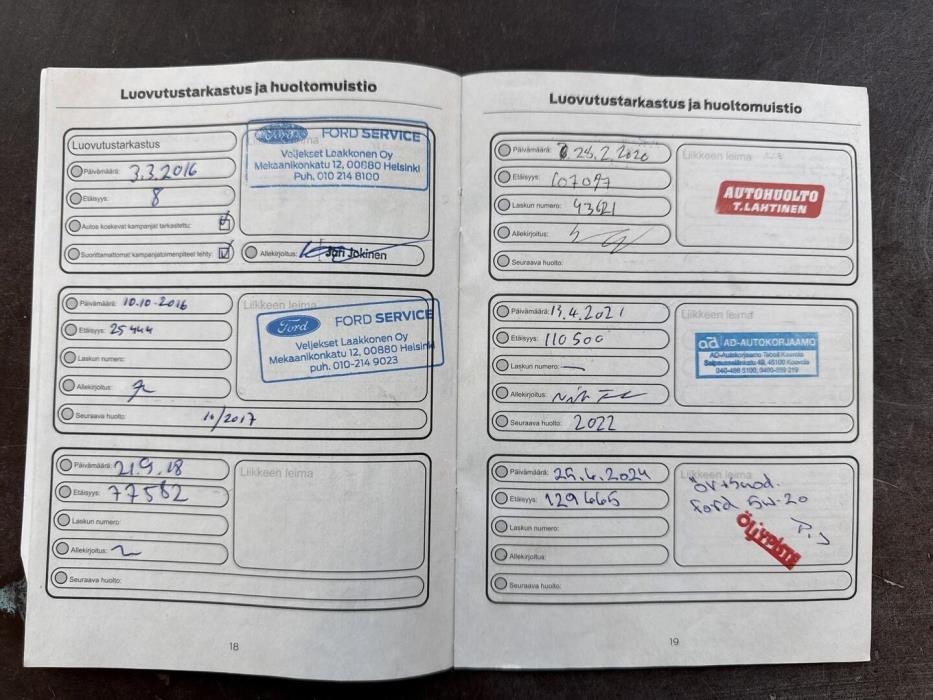 Luovutustarkastus ja huoltomuistio
Luovutustarkastus
Päivämäärä: 3.3.2016
Etäisyys: 8
Autoa koskevat kampanjat tarkastettu:
Suorittamattomat kampanjatoimenpiteet tehty:
Ford FORD SERVICE
Veljekset Laakkonen Oy
Mekaanikonkatu 12, 00880 Helsinki
Puh. 010 214 8100
Allekirjoitus: Jari Jokinen
Päivämäärä: 10.10-2016
Etäisyys: 25444
Laskun numero:
Allekirjoitus:
Seuraava huolto: 10/2017
Liikkeen leima
Ford FORD SERVICE
Veljekset Laakkonen Oy
Mekaanikonkatu 12, 00880 Helsinki
puh. 010-214 9023
Päivämäärä: 21.9.18
Etäisyys: 77582
Laskun numero:
Allekirjoitus:
Seuraava huolto:
Liikkeen leima
18
Luovutustarkastus ja huoltomuistio
Päivämäärä: 25.2.2020
Etäisyys: 107097
Laskun numero: 43621
Allekirjoitus:
Seuraava huolto:
Liikkeen leima
AUTOHUOLTO
T.LAHTINEN
Päivämäärä: 13.4.2021
Etäisyys: 110500
Laskun numero: —
Allekirjoitus:
Seuraava huolto: 2022
Liikkeen leima
ad AD-AUTOKORJAAMO
AD-Autokorjaamo Taboil Kouvola
45100 Kouvola
Päivämäärä: 25.4.2024
Etäisyys: 129665
Laskun numero:
Allekirjoitus:
Seuraava huolto:
Liikkeen leima
öv+suod.
Ford 5w-20
P.J
19